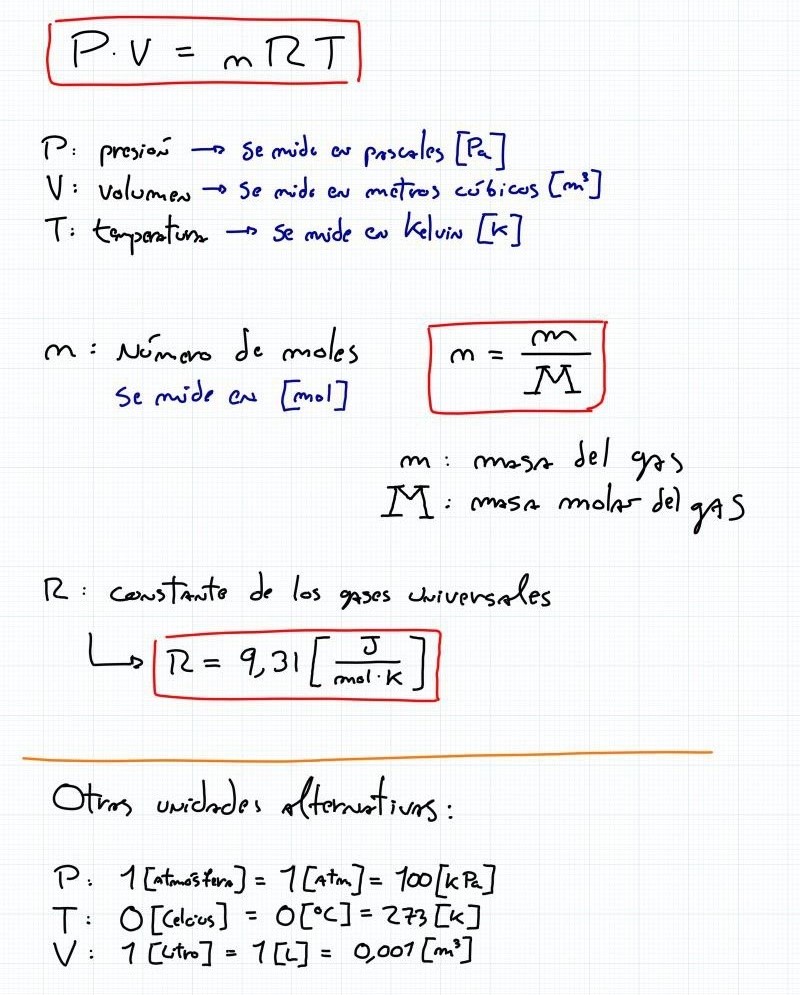 P·V = nRT
P: presión → se mide en pascales [Pa]
V: volumen → se mide en metros cúbicos [m³]
T: temperatura → se mide en Kelvin [K]
n: Número de moles
se mide en [mol]
n = m/M
m: masa del gas
M: masa molar del gas
R: constante de los gases universales
R = 9,31 [J/mol·K]
Otras unidades alternativas:
P: 1 [atmósfera] = 1 [Atm] = 100 [kPa]
T: 0 [Celcius] = 0 [°C] = 273 [K]
V: 1 [Litro] = 1 [L] = 0,001 [m³]